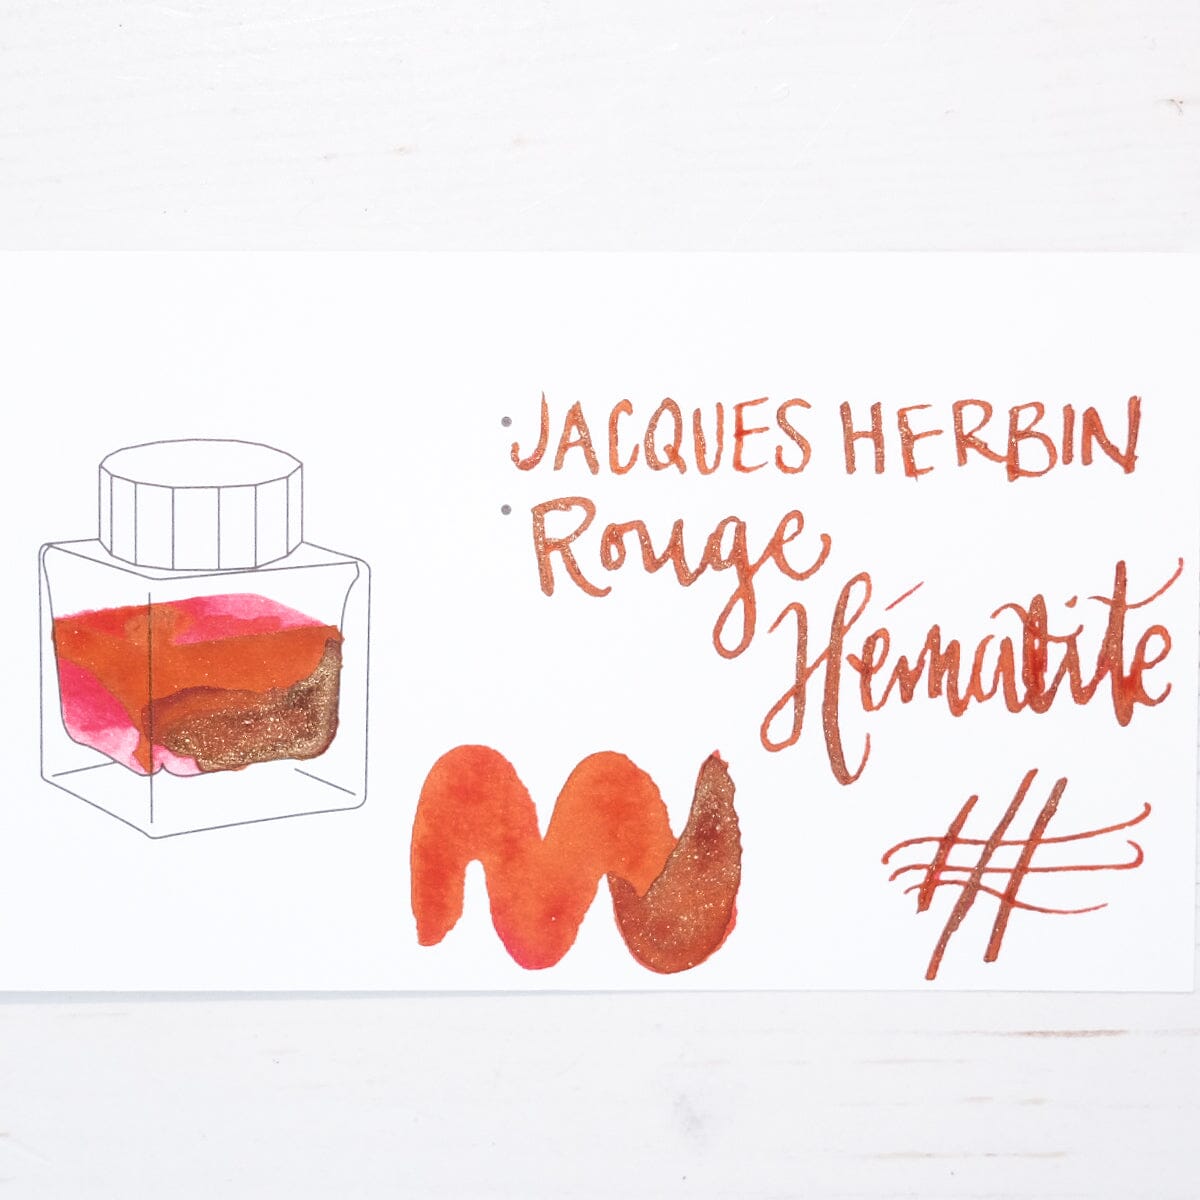 JACQUES HERBIN
Rouge
Hématite